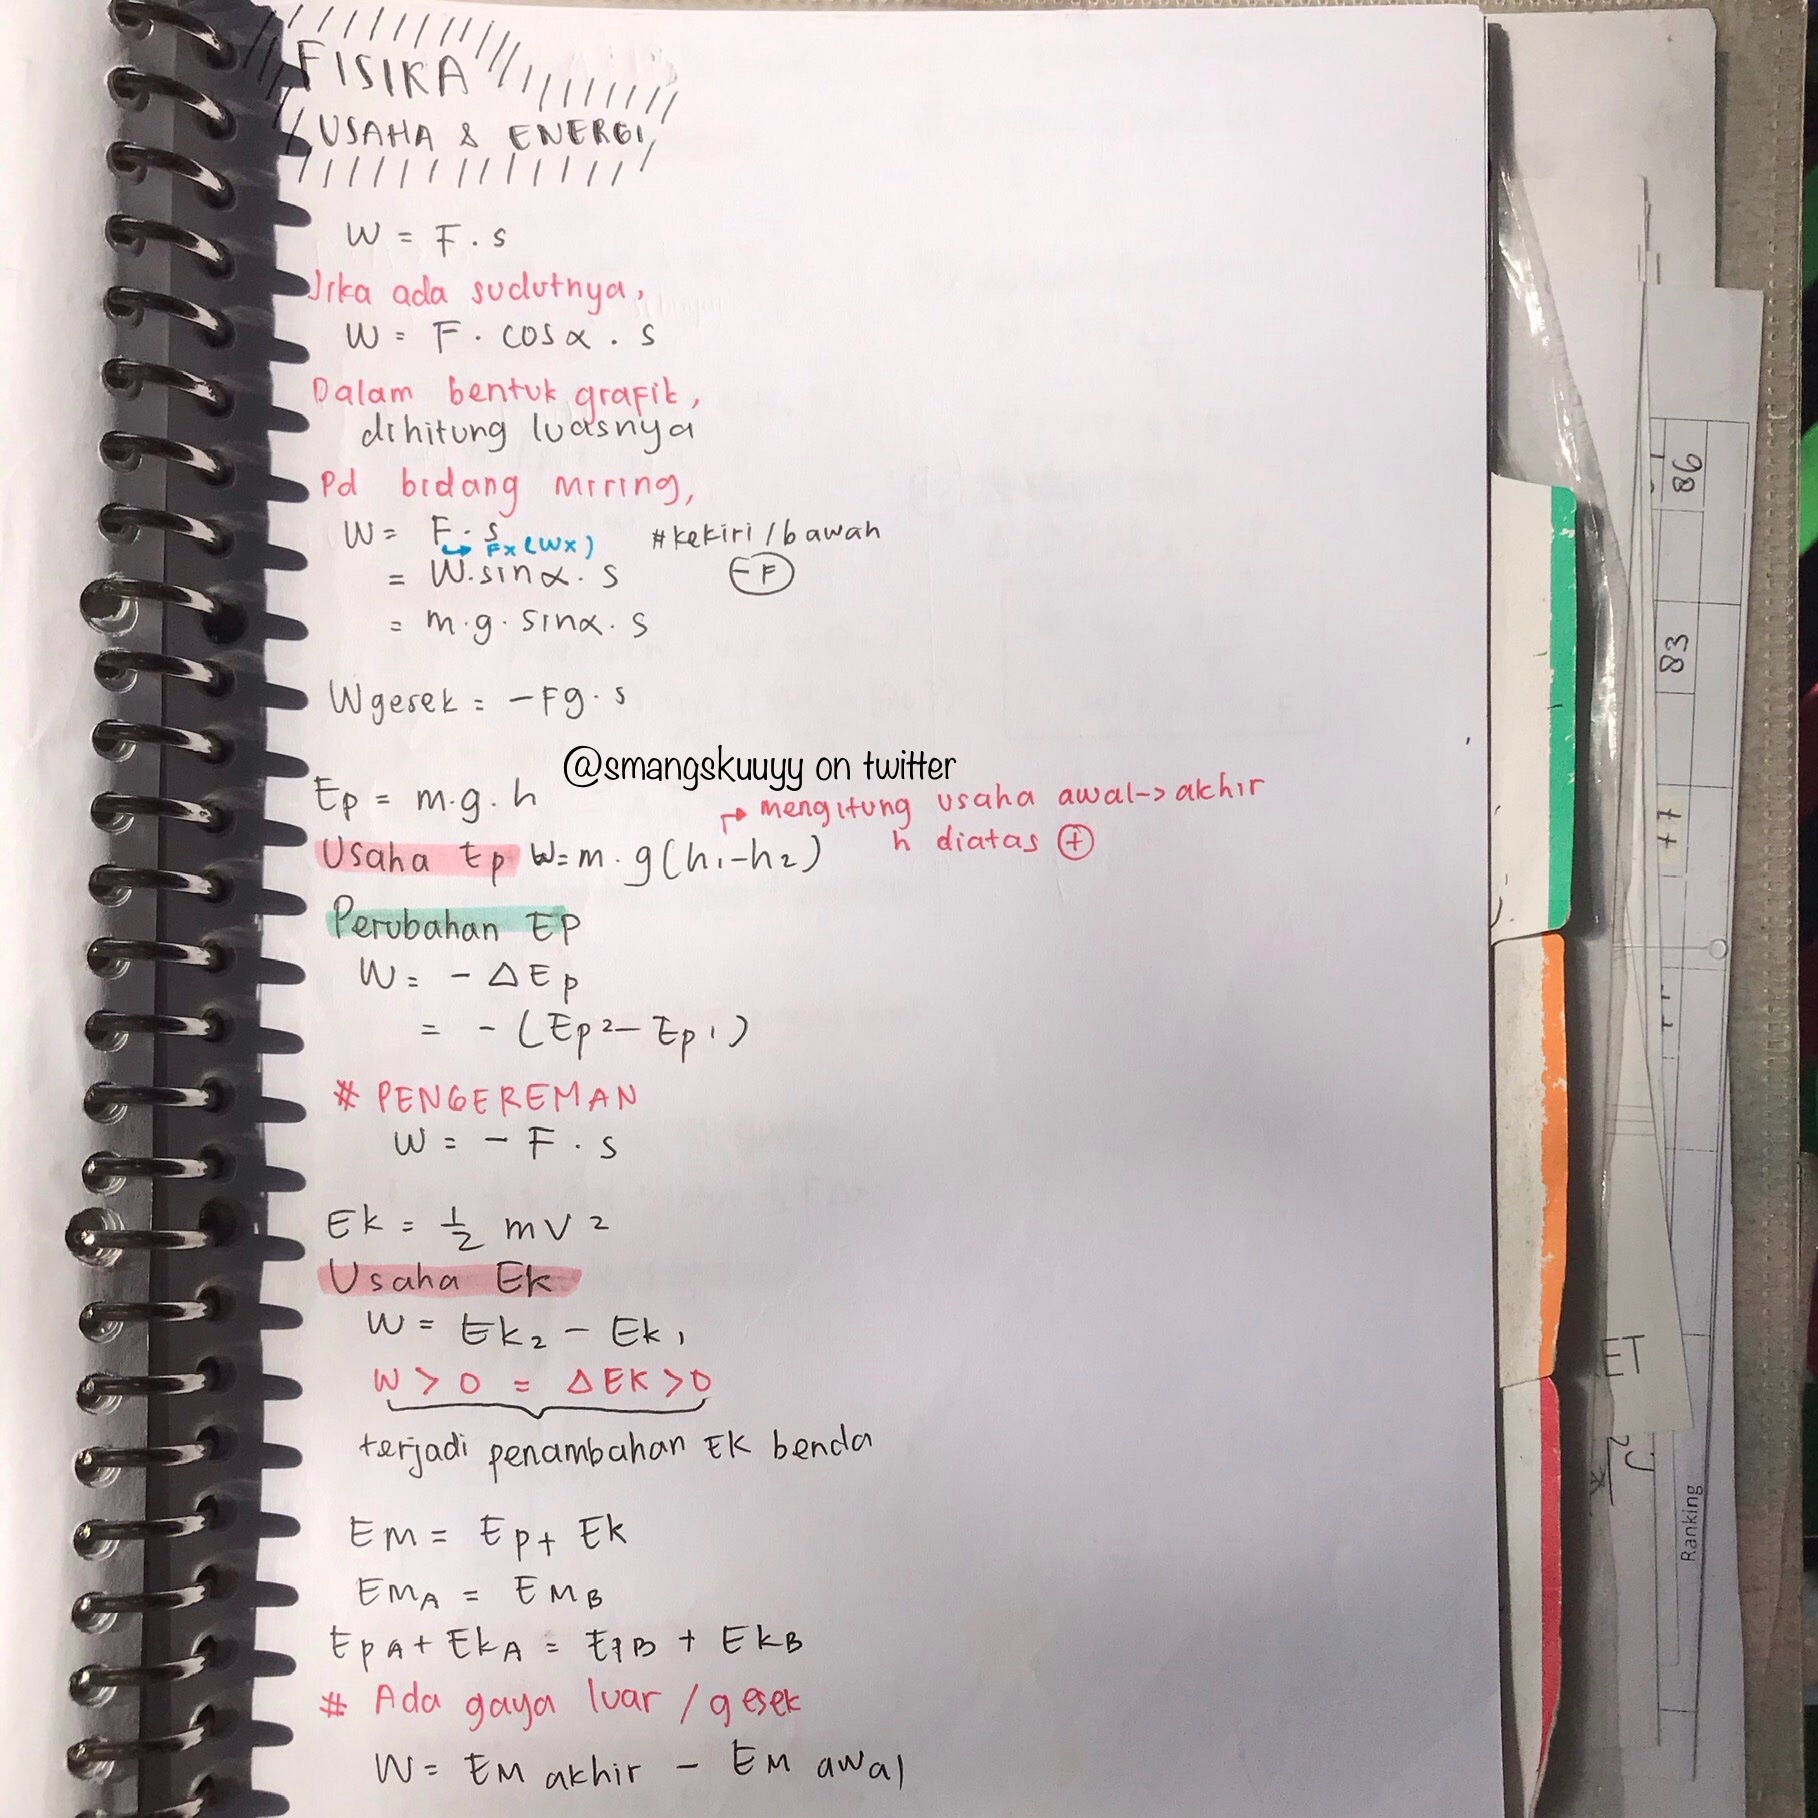 FISIKA
USAHA & ENERGI
W = F . s
Jika ada sudutnya,
W = F . cos α . s
Dalam bentuk grafik,
dihitung luasnya
Pd bidang miring,
W = F . s #kekiri/bawah
↳ Fx (Wx)
= W. sin α . s -F
= m . g . sin α . s
W gesek = - Fg . s
@smangskuuyy on twitter
Ep = m . g . h
→ mengitung usaha awal -> akhir
h diatas +
Usaha Ep W = m . g (h1 - h2)
Perubahan EP
W = - Δ Ep
= - (Ep2 - Ep1)
# PENGEREMAN
W = - F . s
Ek = 1/2 mv2
Usaha Ek
W = Ek2 - Ek1
W > 0 = Δ EK > 0
terjadi penambahan EK benda
EM = Ep + Ek
EMA = EMB
EpA + EkA = EpB + EkB
# Ada gaya luar / gesek
W = EM akhir - EM awal
86
83
77
ET
Ranking